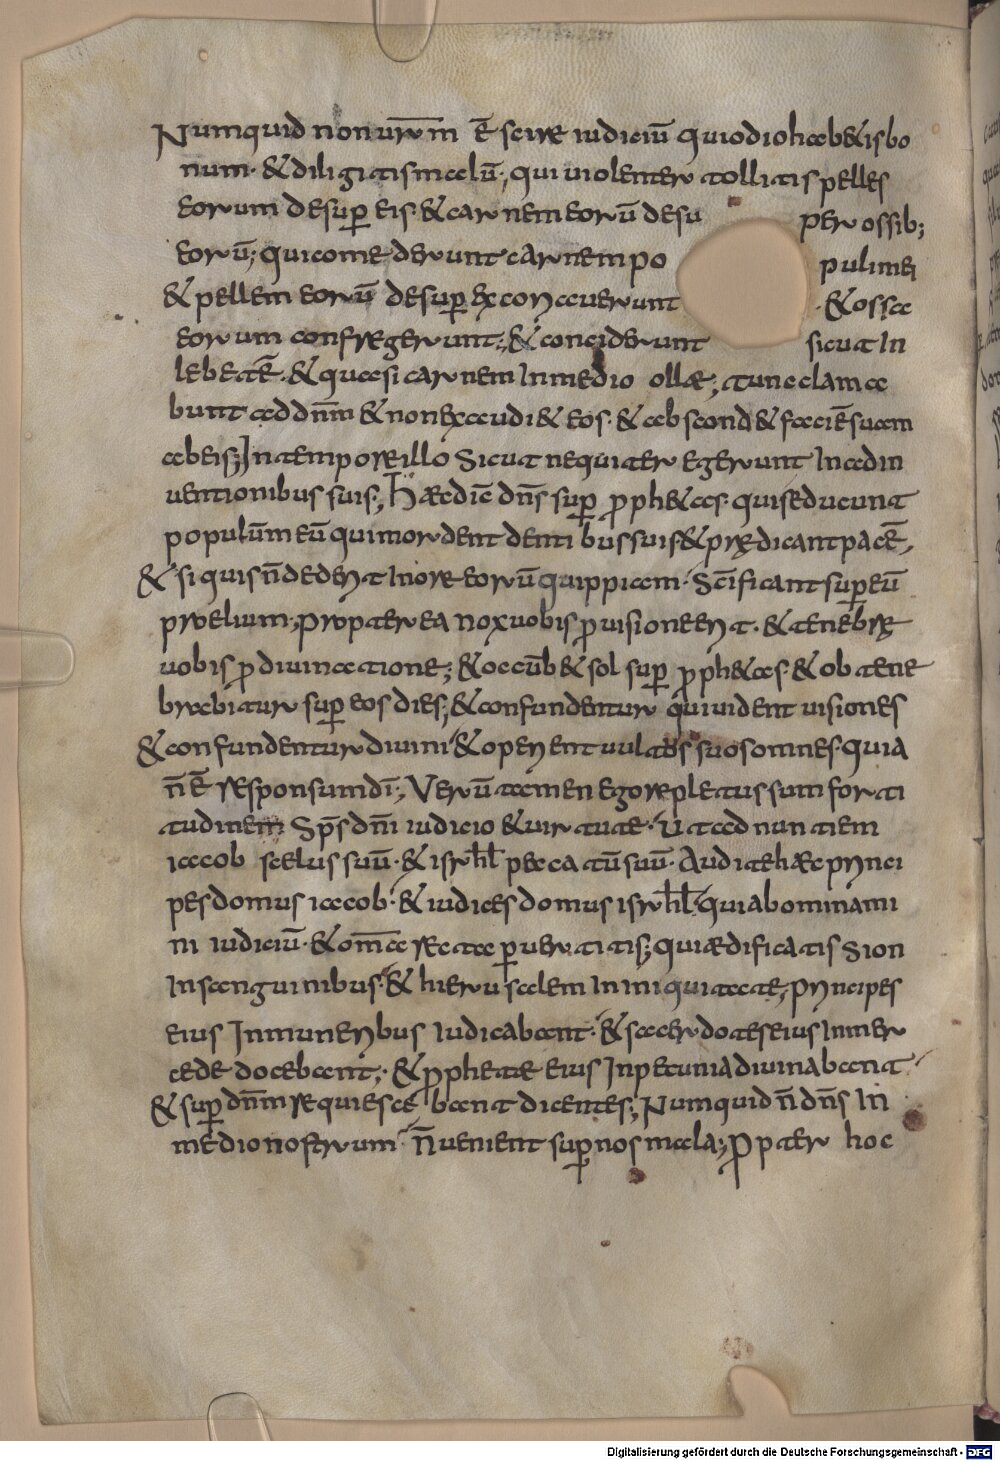 Numquid non ur̅m e̅ scire iudiciu̅ qui odio habetis bo
num· & diligitis malu̅; qui uiolenter tollitis pelles
eorum desup̱ eis· & carnem eoru̅ desu per ossib;
eoru̅; qui comederunt carnem po puli mei
& pellem eoru̅ desup̱ excoriauerunt · & ossa
eorum confregerunt; & conciderunt sicut in
lebete̅· & quasi carnem in medio ollæ; tunc clama
bunt ad dn̅m & non exaudi& eos· & abscond& facie̅ suam
ab eis; In tempore illo sicut nequiter egerunt in adin
uentionibus suis; Hæc dic̅ dn̅s sup̱ p̱ph&as· qui seducunt
populu̅ meu̅ qui mordent dentibus suis & prędicant pace̅,
& si quis n̅ dederit in ore eoru̅ quippiam· Sc̅ificant sup̱ eu̅
proelium; Propterea nox uobis p̱ uisione erit· & tenebrę
uobis p̱ diuinatione; & occu̅b& sol sup̱ p̱ph&as· & obtene
brabitur sup̱ eos dies; & confundentur qui uident uisiones
& confundentur diuini & operient uultos suos omnes· quia
n̅ e̅ responsum di̅; Veru̅tamen ego repletus sum forti
tudinem sp̅s dn̅i iudicio & uirtute· ut adnuntiem
iacob scelus suu̅· & isrh̅l peccatu̅ suu̅· Audite hæc princi
pes domus iacob· & iudices domus isrh̅l· qui abominami
ni iudiciu̅· & om̅a recta p̱uertitis; qui ædificatis sion
in sanguinibus· & hierusalem in iniquitate; Principes
eius In muneribus iudicabant· & sacerdotes eius in mer
cede docebant; & p̱phetæ eius In pecunia diuinabant·
& sup̱ dn̅m requiesce bant dicentes; Numquid n̅ dn̅s in
medio nostrum n̅ uenient sup̱ nos mala; P̱pter hoc
Digitalisierung gefördert durch die Deutsche Forschungsgemeinschaft - DFG